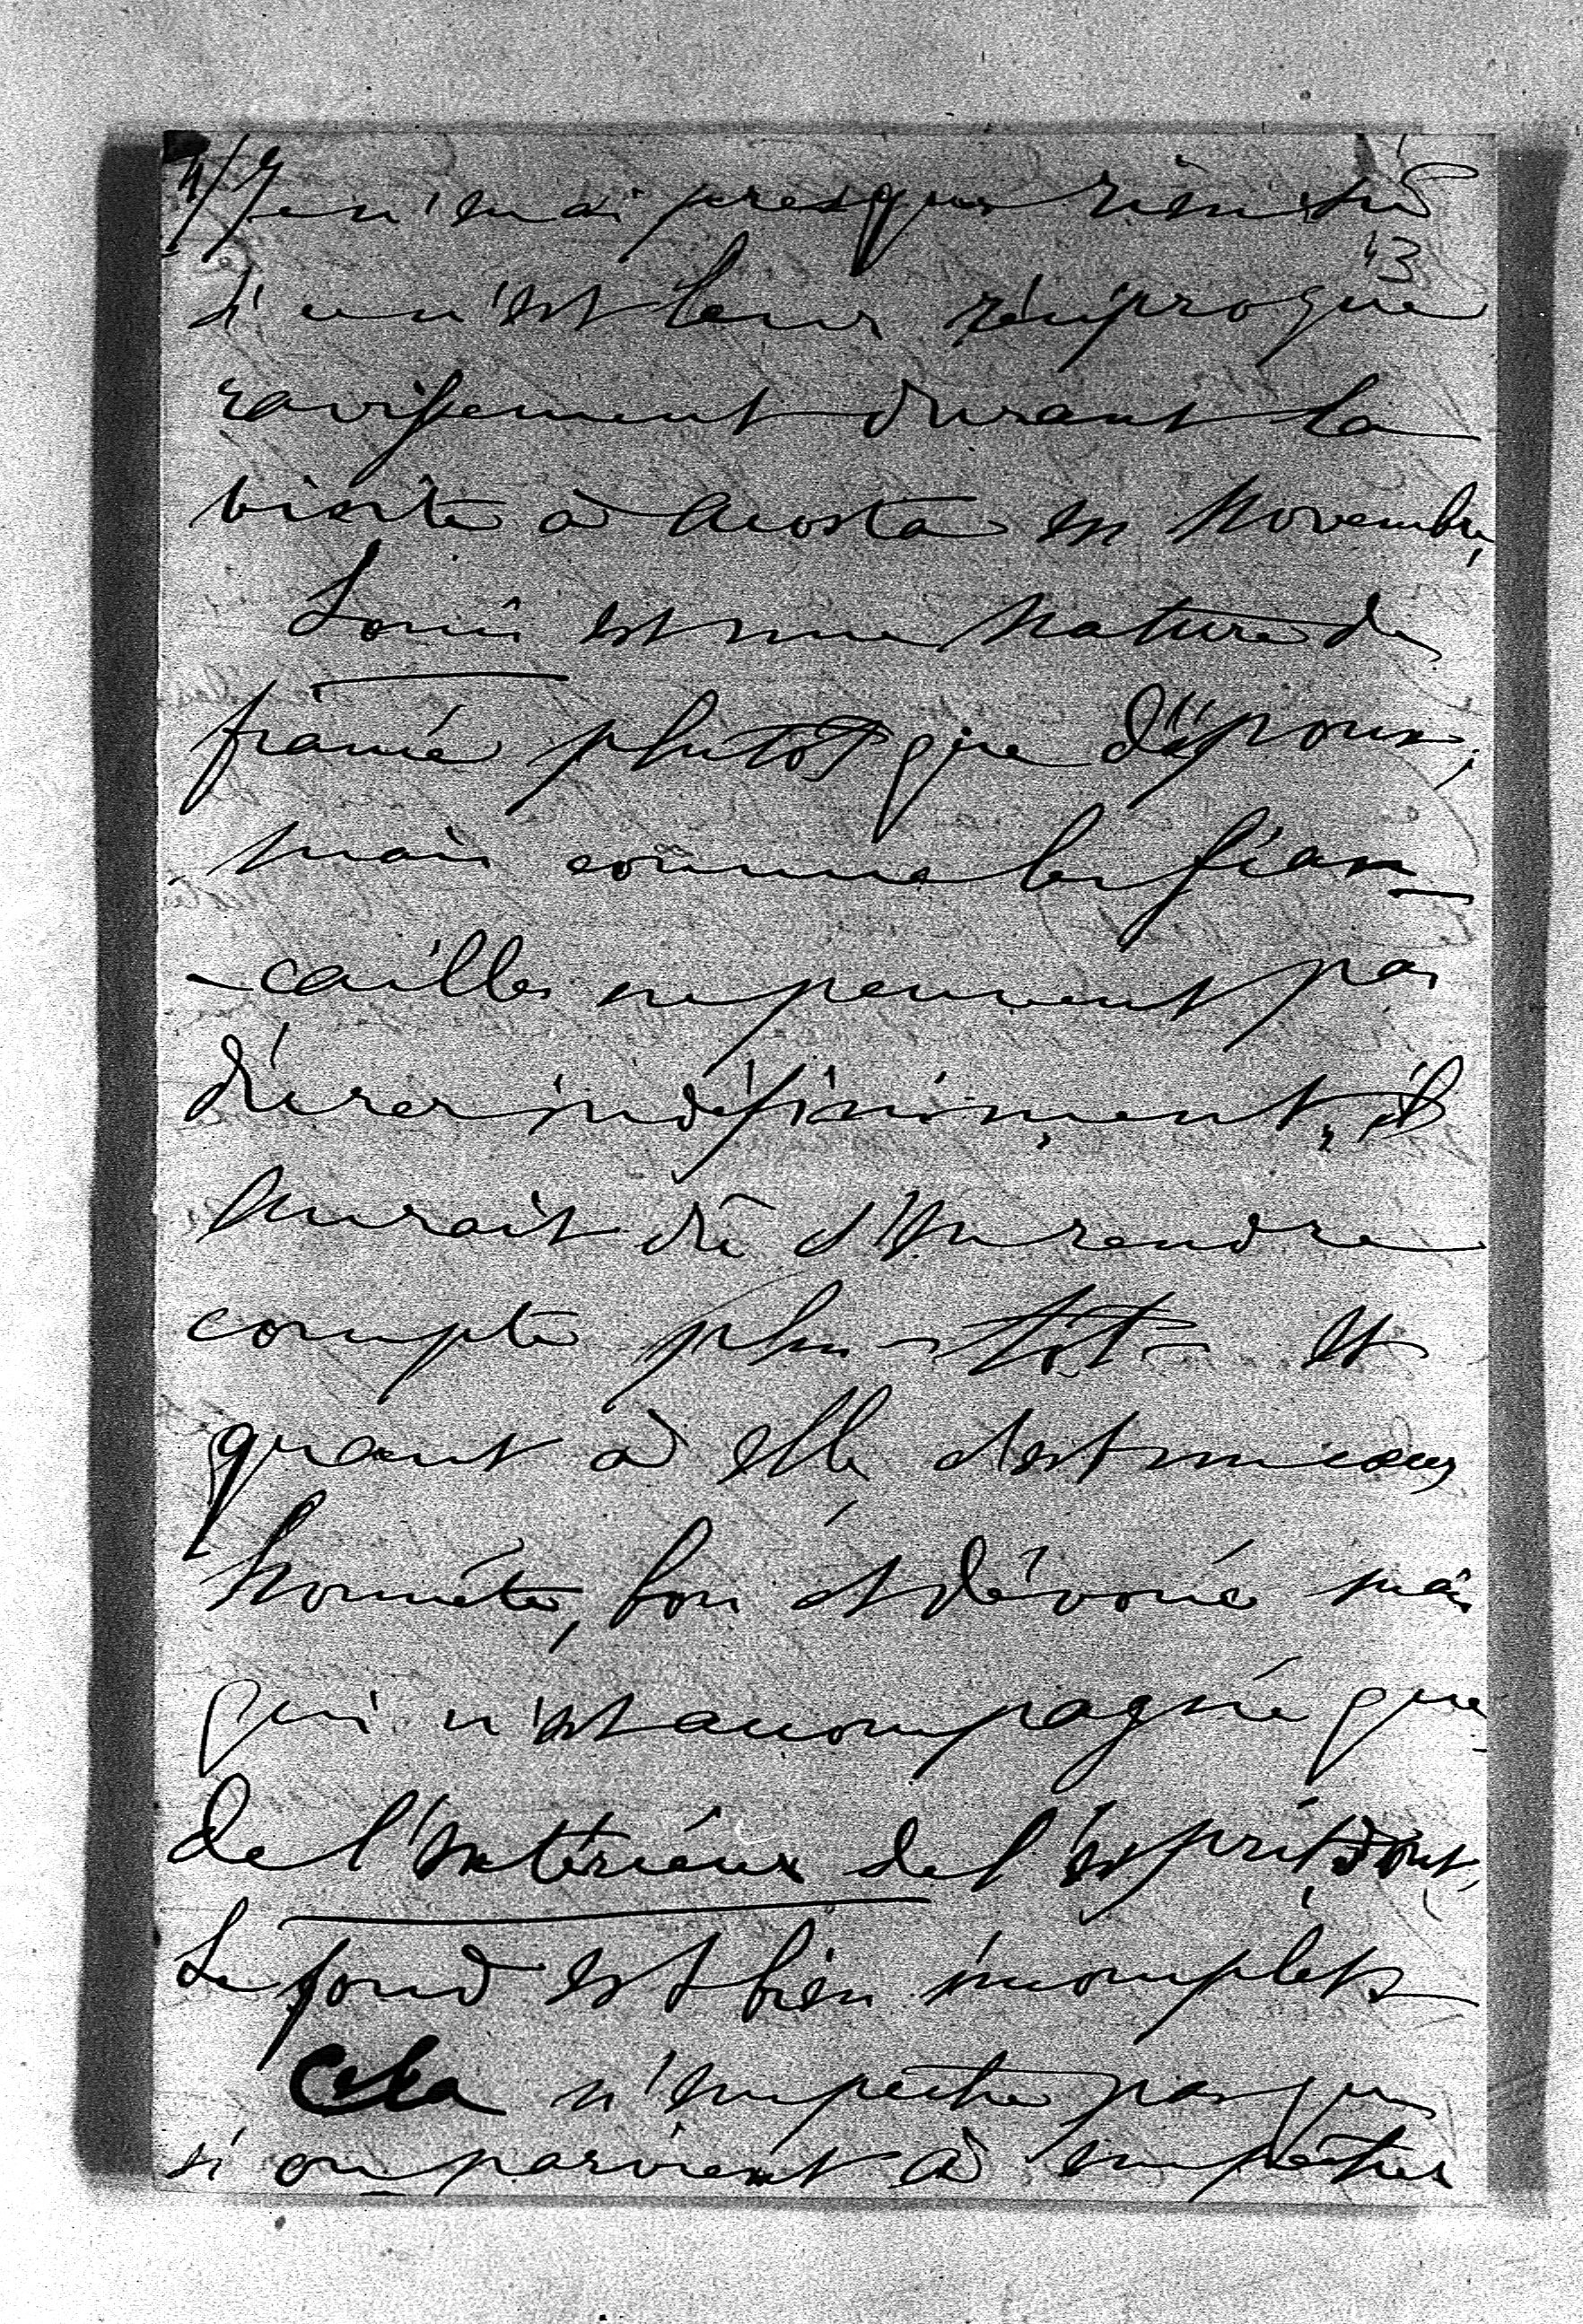 4/ Je n'en ai presque rien su
43
si ce n'est leur réciproque
ravissement durant la
visite à Acosta en Novembre,
Louis est une Nature de
fiancé plutôt que d'époux,
mais comme les fian-
-cailles ne peuvent pas
durer indéfiniment, il
aurait dû s'en rendre
compte plus-tôt - et
quant à elle c'est un cœur
honnête, bon et dévoué mais
qui n'est accompagné que
de l'extérieur de l'esprit dont
le fond est bien incomplet
Cela n'empêche pas que
si on parvient à empêcher